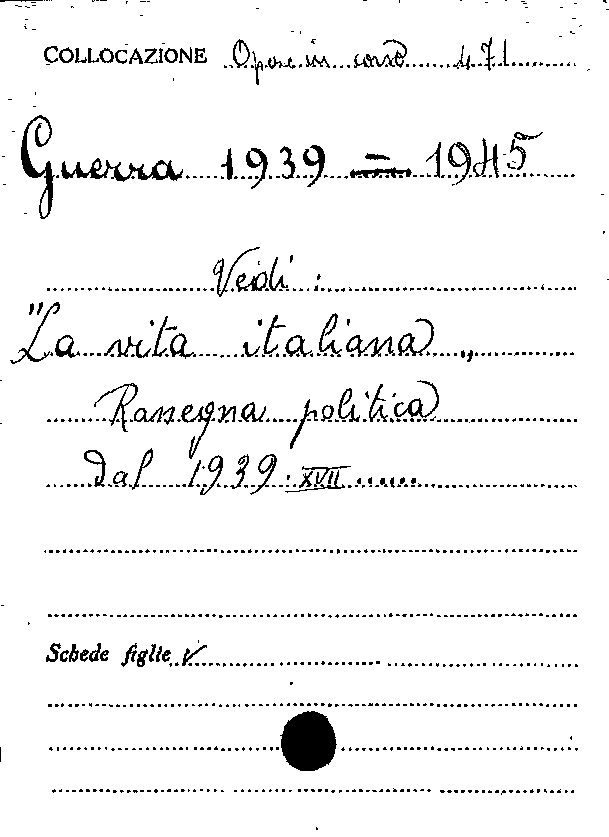 COLLOCAZIONE Opere in corso 471
Guerra 1939 = 1945
Vedi :
"La vita italiana„
Rassegna politica
dal 1939. XVII ......
Schede figlie ✓